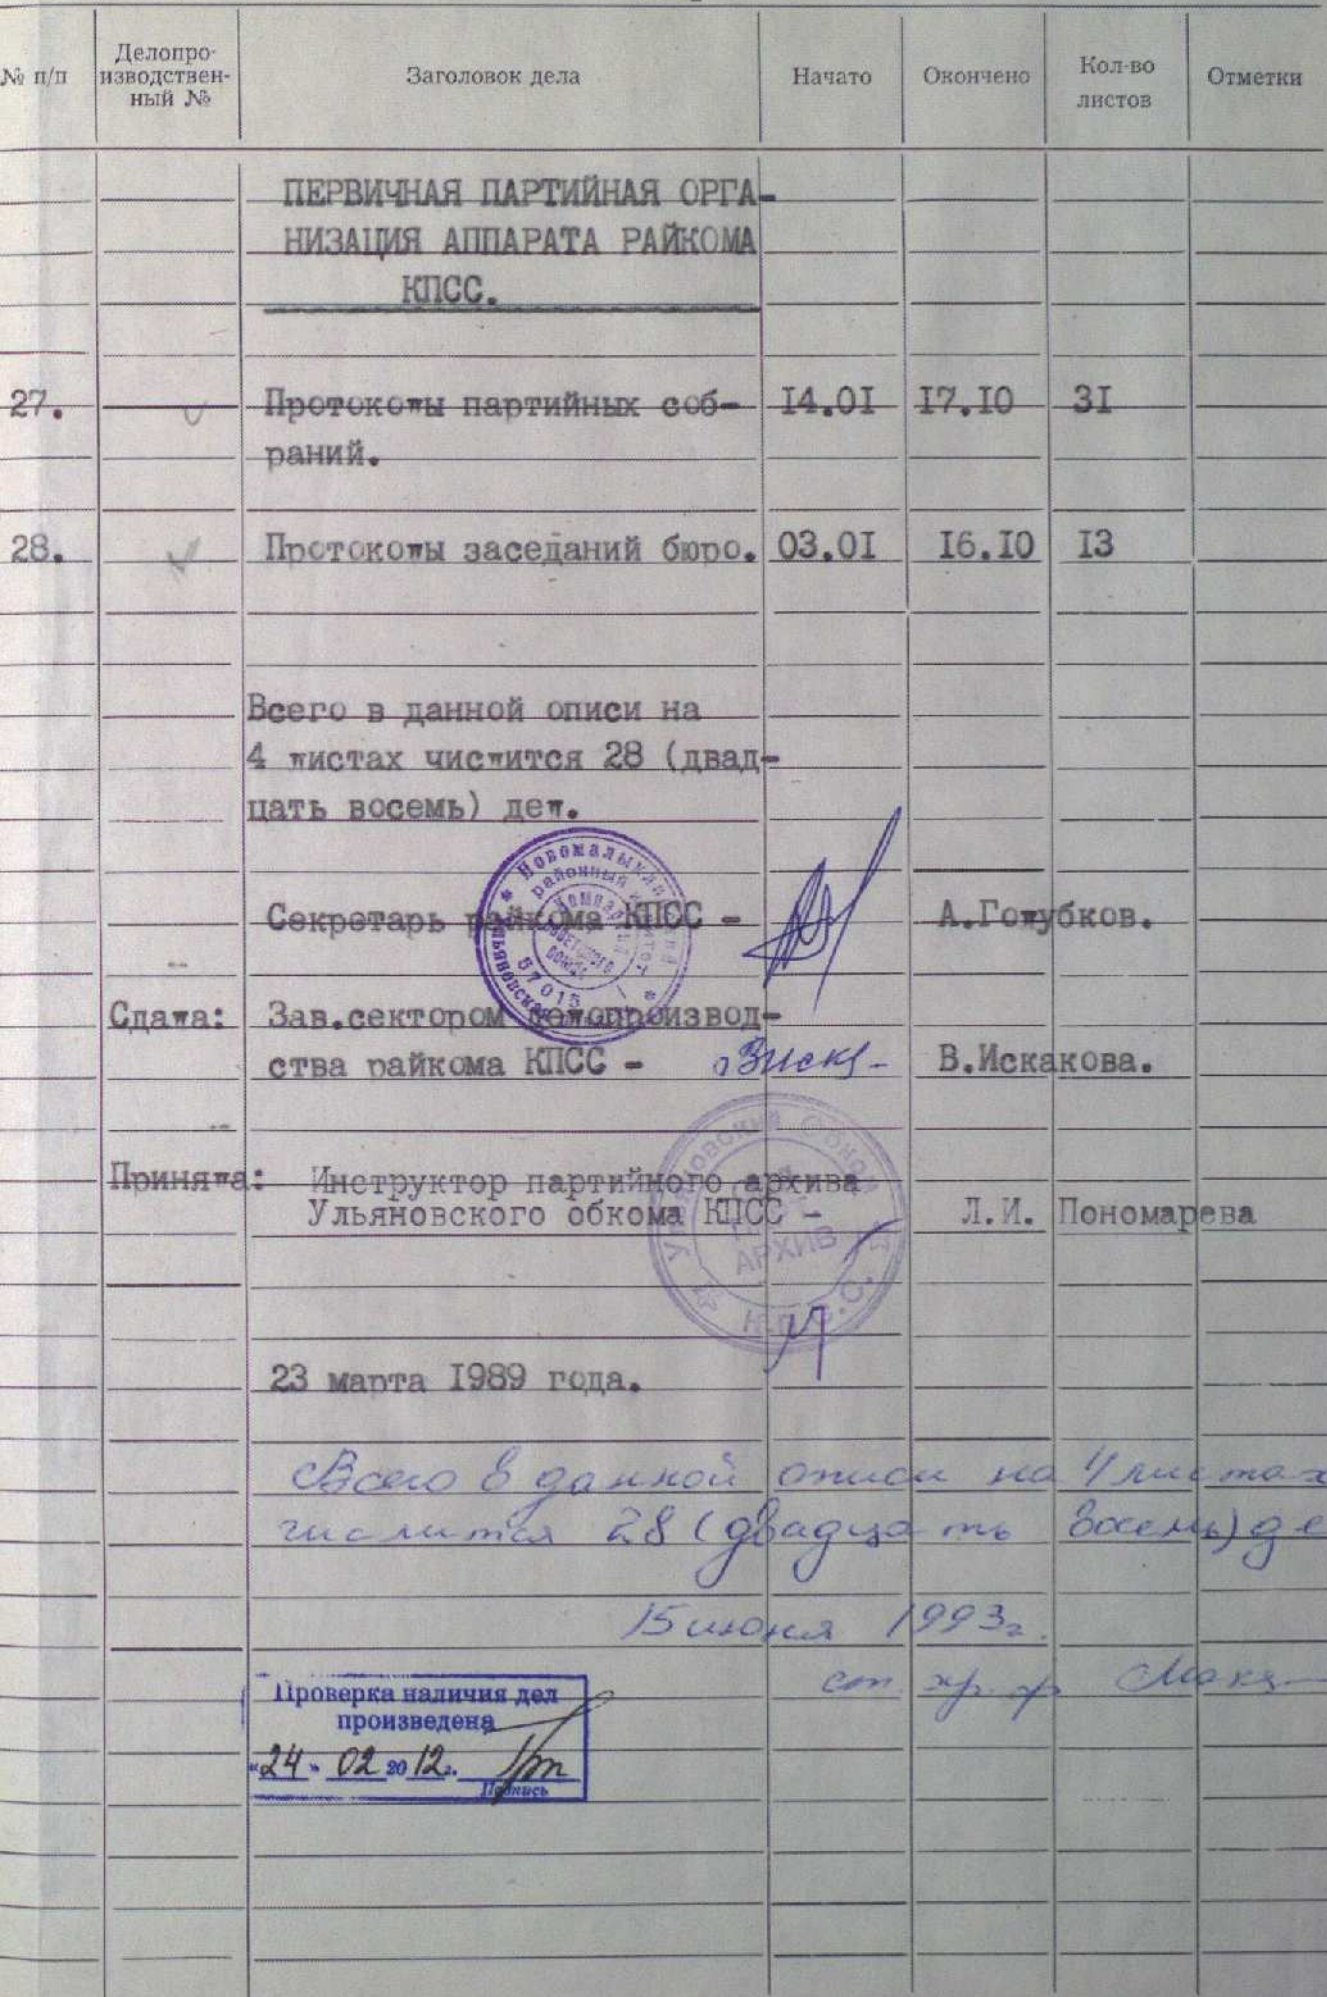 № п/п Делопро- Заголовок дела Начато Окончено Кол-во Отметки
изводствен- листов
ный №
ПЕРВИЧНАЯ ПАРТИЙНАЯ ОРГА-
НИЗАЦИЯ АППАРАТА РАЙКОМА
КПСС.
27. Протоколы партийных соб- 14.01 17.10 31
раний.
28. Протоколы заседаний бюро. 03.01 16.10 13
Всего в данной описи на
4 листах числится 28 (двад-
цать восемь) дел.
Секретарь райкома КПСС - А.Голубков.
Сдала: Зав.сектором делопроизвод-
ства райкома КПСС - В.Искакова.
Приняла: Инструктор партийного архива
Ульяновского обкома КПСС - Л.И. Пономарева
АРХИВ
23 марта 1989 года.
Всего в данной описи на 4 листах
числится 28 (двадцать восемь) де
15 июня 1993г.
ст. хр.
Проверка наличия дел
произведена
"24" 02 2012г.
Подпись